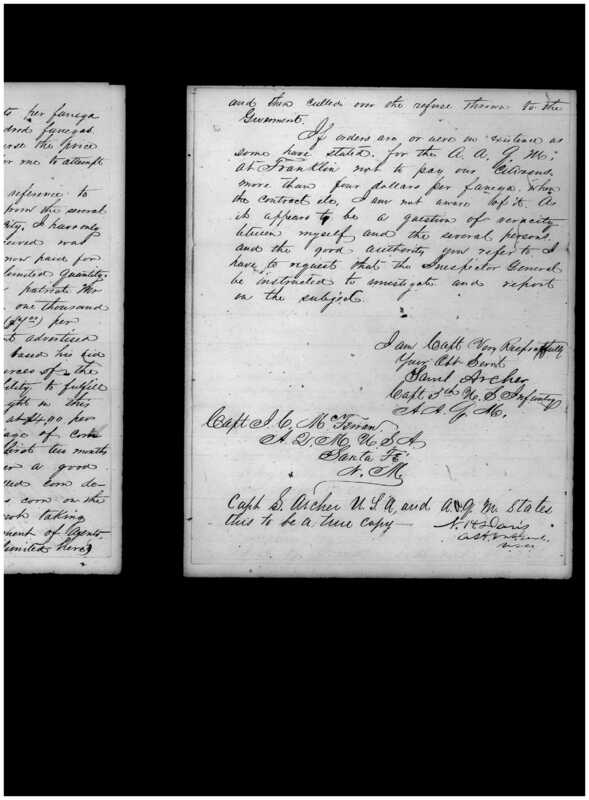 to per fanega
fanegas.
the price
or me to attempt
reference to
from the several
I have only
was
now paid for
limited quantity.
patriot Mr
one thousand
per
advertised
based his bid
of the
to fulfill
in this
at $4.00 per
of corn
first ten months
a good
corn de-
corn on the
not taking
of Agents
limited here)
and then culled over the refuse thrown to the
Government.
If orders are or were in existence as
some have stated, for the A. A. Q. M.
at Franklin not to pay our Citizens
more than four dollars per fanega, when
the contract etc, I am not aware of it. As
it appears to be a question of veracity
between myself and the several persons
and the good authority you refer to I
have to request that the Inspector General
be instructed to investigate and report
on the subject.
I am Capt. Very Respectfully
Your Obt Servt
Saml Archer
Capt 5th U. S Infantry
A. A. Q. M.
Capt J. C. McFerran
A. Q. M. U S A
Santa Fé
N. M.
Capt S. Archer U. S. A. and A. A. Q. M. States
this to be a true copy—
N. H. Davis